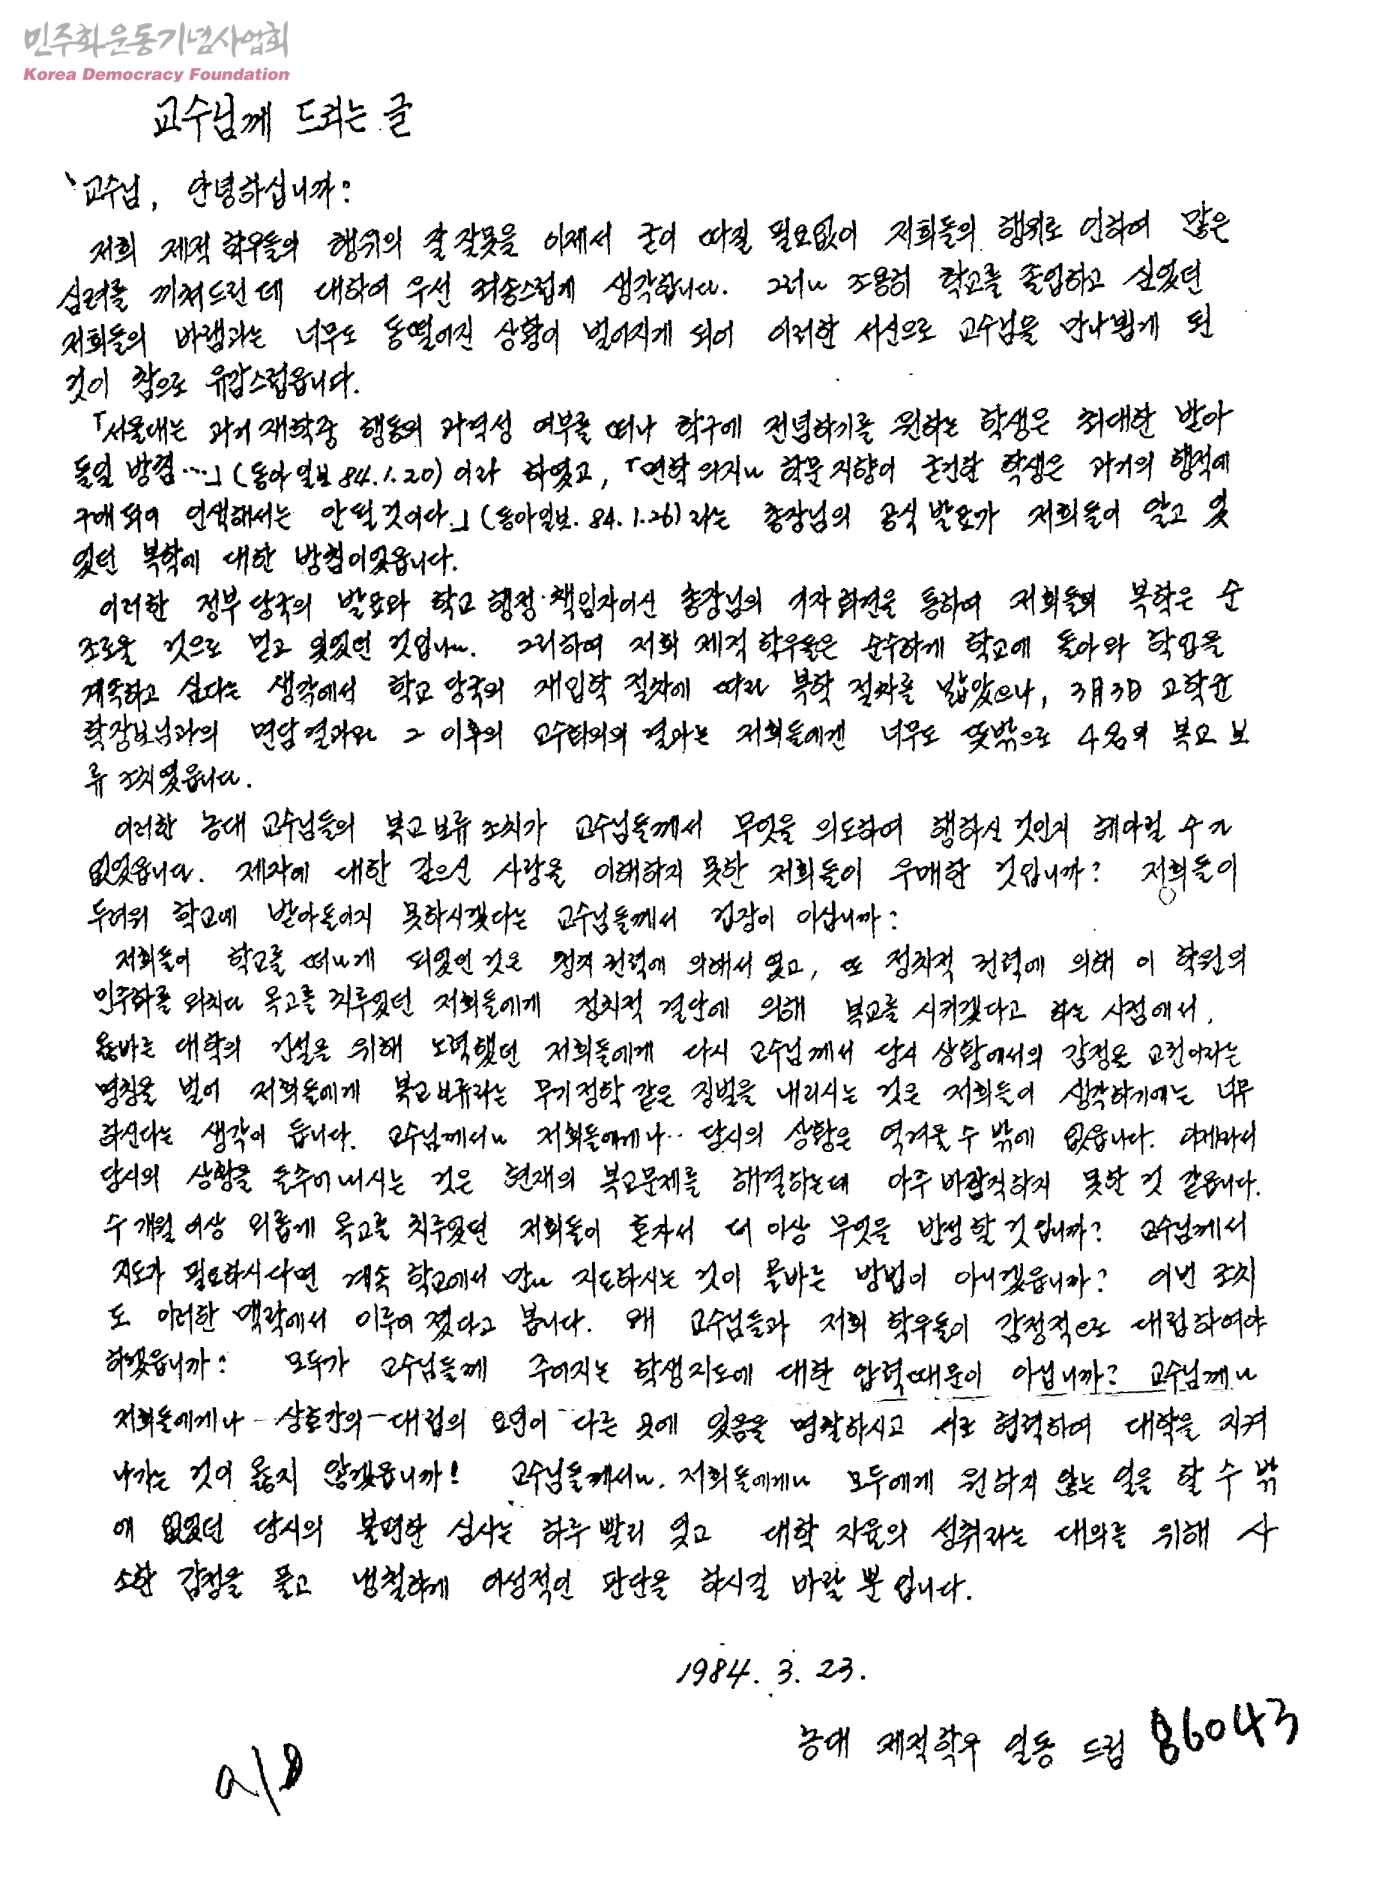 민주화운동기념사업회
Korea Democracy Foundation
교수님께 드리는 글
교수님, 안녕하십니까?
저희 제적 학우들의 행위의 잘잘못을 이제서 굳이 따질 필요없이 저희들의 행위로 인하여 많은
심려를 끼쳐드린데 대하여 우선 죄송스럽게 생각합니다. 그러나 조용히 학교를 졸업하고 싶었던
저희들의 바램과는 너무도 동떨어진 상황이 벌어지게 되어 이러한 서신으로 교수님을 만나뵙게 된
것이 참으로 유감스럽읍니다.
「서울대는 과거 재학중 행동의 과격성 여부를 떠나 학구에 전념하기를 원하는 학생은 최대한 받아
들일 방침…」(동아일보 84.1.20) 이라 하였고, 「면학의지나 학문지향이 굳건한 학생은 과거의 행적에
구애되어 인색해서는 안될것이다.」(동아일보. 84.1.26)라는 총장님의 공식발표가 저희들이 알고 있
었던 복학에 대한 방침이었읍니다.
이러한 정부당국의 발표와 학교 행정·책임자이신 총장님의 기자회견을 통하여 저희들의 복학은 순
조로울 것으로 믿고 있었던 것입니다. 그리하여 저희 제적 학우들은 순수하게 학교에 돌아와 학업을
계속하고 싶다는 생각에서 학교당국의 재입학 절차에 따라 복학 절차를 밟았으나, 3月3日 고학균
학장보님과의 면담결과와 그 이후의 교수회의의 결과는 저희들에겐 너무도 뜻밖으로 4名의 복교 보
류 조치였읍니다.
이러한 농대 교수님들의 복교보류조치가 교수님들께서 무엇을 의도하여 행하신 것인지 헤아릴 수가
없었읍니다. 제자에 대한 깊으신 사랑을 이해하지 못한 저희들이 우매한 것입니까? 저희들이
두려워 학교에 받아들이지 못하시겠다는 교수님들께서 겁장이 이십니까?
저희들이 학교를 떠나게 되었던 것은 정치권력에 의해서 였고, 또 정치적 권력에 의해 이 학원의
민주화를 외치다 옥고를 치루었던 저희들에게 정치적 결단에 의해 복교를 시키겠다고 하는 시점에서,
올바른 대학의 건설을 위해 노력했던 저희들에게 다시 교수님께서 당시 상황에서의 감정을 교권이라는
명칭을 빌어 저희들에게 복교보류라는 무기정학 같은 징벌을 내리시는 것은 저희들이 생각하기에는 너무
하신다는 생각이 듭니다. 교수님께서나 저희들에게나 당시의 상황은 역겨울 수 밖에 없읍니다. 이제와서
당시의 상황을 들추어내시는 것은 현재의 복교문제를 해결하는데 아주 바람직하지 못한 것 같읍니다.
수 개월 이상 외롭게 옥고를 치루었던 저희들이 혼자서 더 이상 무엇을 반성할 것입니까? 교수님께서
지도가 필요하시다면 계속 학교에서 만나 지도하시는 것이 올바른 방법이 아니겠읍니까? 이번 조치
도 이러한 맥락에서 이루어 졌다고 봅니다. 왜 교수님들과 저희 학우들이 감정적으로 대립하여야
하겠읍니까? 모두가 교수님들께 주어지는 학생지도에 대한 압력때문이 아닙니까? 교수님께나
저희들에게나 상호간의 대립의 요인이 다른 곳에 있음을 명찰하시고 서로 협력하여 대학을 지켜
나가는 것이 옳지 않겠읍니까! 교수님들께서나, 저희들에게나 모두에게 원하지 않는 일을 할 수 밖
에 없었던 당시의 불편한 심사는 하루 빨리 잊고 대학 자율의 성취라는 대의를 위해 사
소한 감정을 풀고 냉철하게 이성적인 판단을 하시길 바랄 뿐입니다.
1984. 3. 23.
농대 제적학우 일동 드림 86043